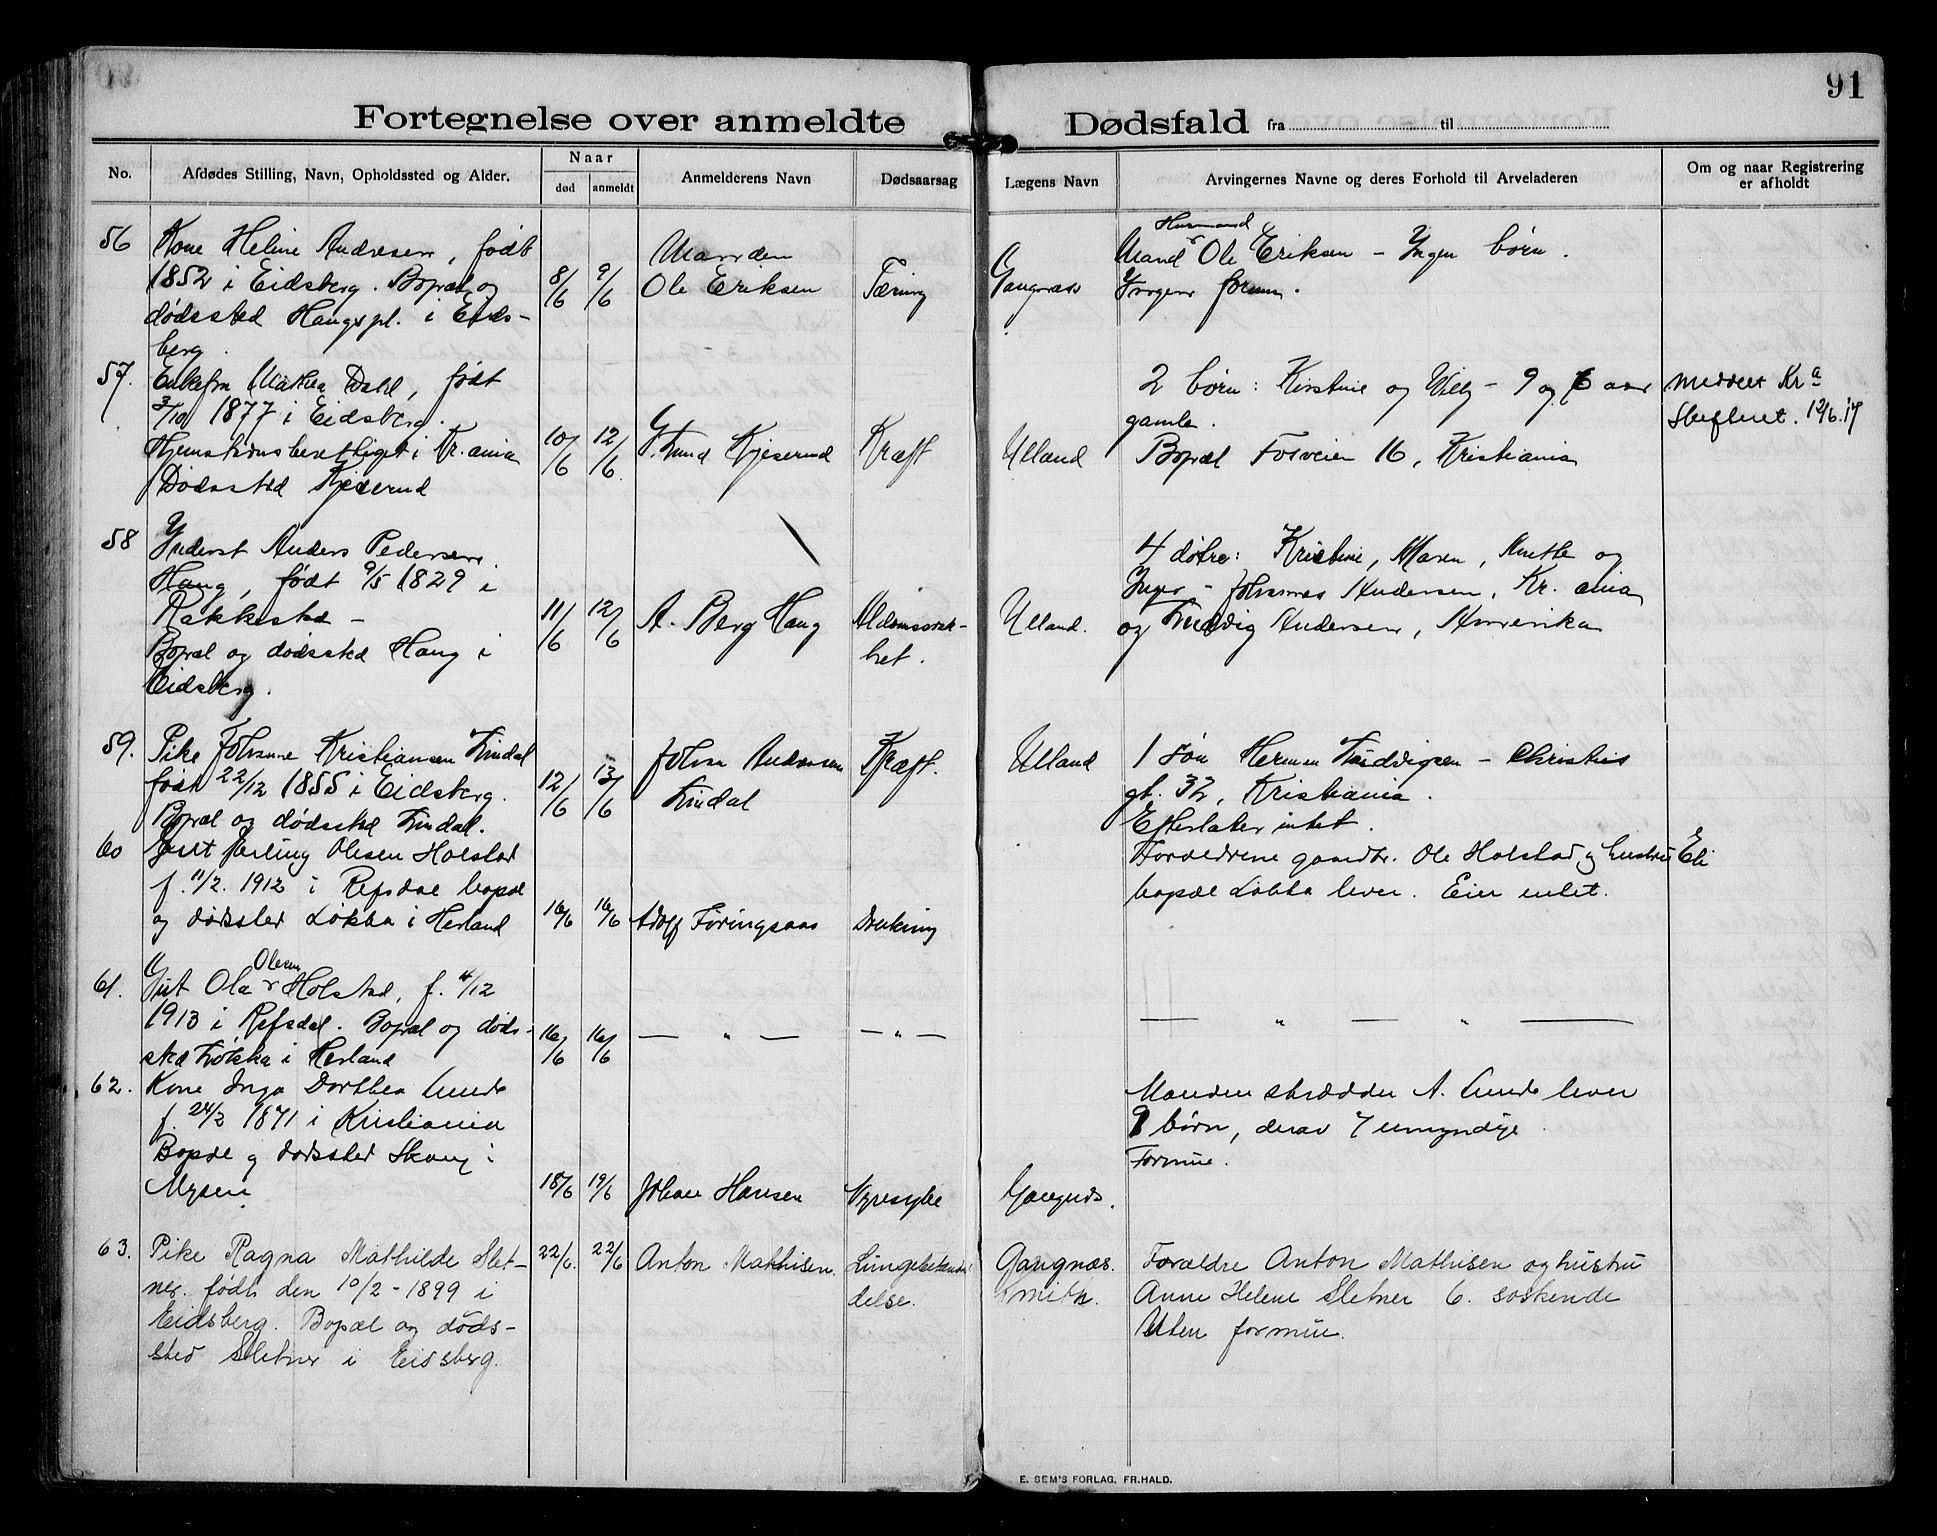 91
Fortegnelse over anmeldte Dødsfald fra til
No.
Afdødes Stilling, Navn, Opholdssted og Alder.
Naar
død
anmeldt
Anmelderens Navn
Dødsaarsag
Lægens Navn
Arvingernes Navne og deres Forhold til Arveladeren
Om og naar Registrering
er afholdt
56
Kone Heline Andresen, født
1852 i Eidsberg. Bopæl og
dødssted Haugspl. i Eids-
berg.
8/6
9/6
Manden
Ole Eriksen
Tæring
Gangnæs
Husmand
Mand Ole Eriksen - Ingen børn.
Ingen formue.
57.
Enkefru Mathea Dahl, født
3/10 1877 i Eidsberg.
Hjemstavnsberettiget i Kr.ania
Dødssted Kjeserud
10/6
12/6
G. Lund Kjeserud
Kræft
Ulland
2 børn: Kirstine og Willy - 9 og 6 aar
gamle.
Bopæl Fosveien 16, Kristiania
Meddelt Kra
Skifteret. 12/6.17
58
Inderst Anders Pedersen
Haug, født 9/5 1829 i
Rakkestad -
Bopæl og dødssted Haug i
Eidsberg.
11/6
12/6
A. Berg Haug
Alderdomssvak-
het.
Ulland.
4 døtre: Kristine, Maren, Anette og
Inga - Johannes Andersen, Kr.ania
og Ludvig Andersen, Amerika
59.
Pike Johanne Kristiansen Lindal
født 22/12 1855 i Eidsberg.
Bopæl og dødssted Lindal.
12/6
13/6
Johan Andersen
Lindal
Kræft.
Ulland
1 søn Herman Ludvigsen - Christies
gt. 32, Kristiania.
Efterlater intet.
60
Gut Erling Olesen Holstad
f. 11/2. 1912 i Refsdal bopæl
og dødssted Løkka i Herland
16/6
16/6
Adolf Føringsaas
Drukning
Forældrene gaardbr. Ole Holstad og hustru Eli
bopæl Løkka lever. Eier intet.
61.
Olesen
Gut Ola Holstad, f. 4/12
1913 i Refsdal. Bopæl og døds-
sted Løkka i Herland
16/6
16/6
— " —
— " —
— " — " —
62.
Kone Inga Dorthea Lunde
f. 24/2 1871 i Kristiania
Bopæl og dødssted Skaug i
Mysen.
18/6
19/6
Johan Hansen
Nyresyke
Gangnæs.
Manden skrædder A. Lunde lever
9 børn, derav 7 umyndige.
Formue.
63.
Pike Ragna Mathilde Slet-
ner. født den 10/2 - 1899 i
Eidsberg. Bopæl og døds-
sted Sletner i Eidsberg.
22/6.
22/6
Anton Mathisen.
Lungebetæn-
delse.
Gangnæs.
Smith.
Forældre Anton Mathisen og hustru
Anne Helene Sletner 6. søskende
Uten formue.
E. SEM'S FORLAG, FR.HALD.